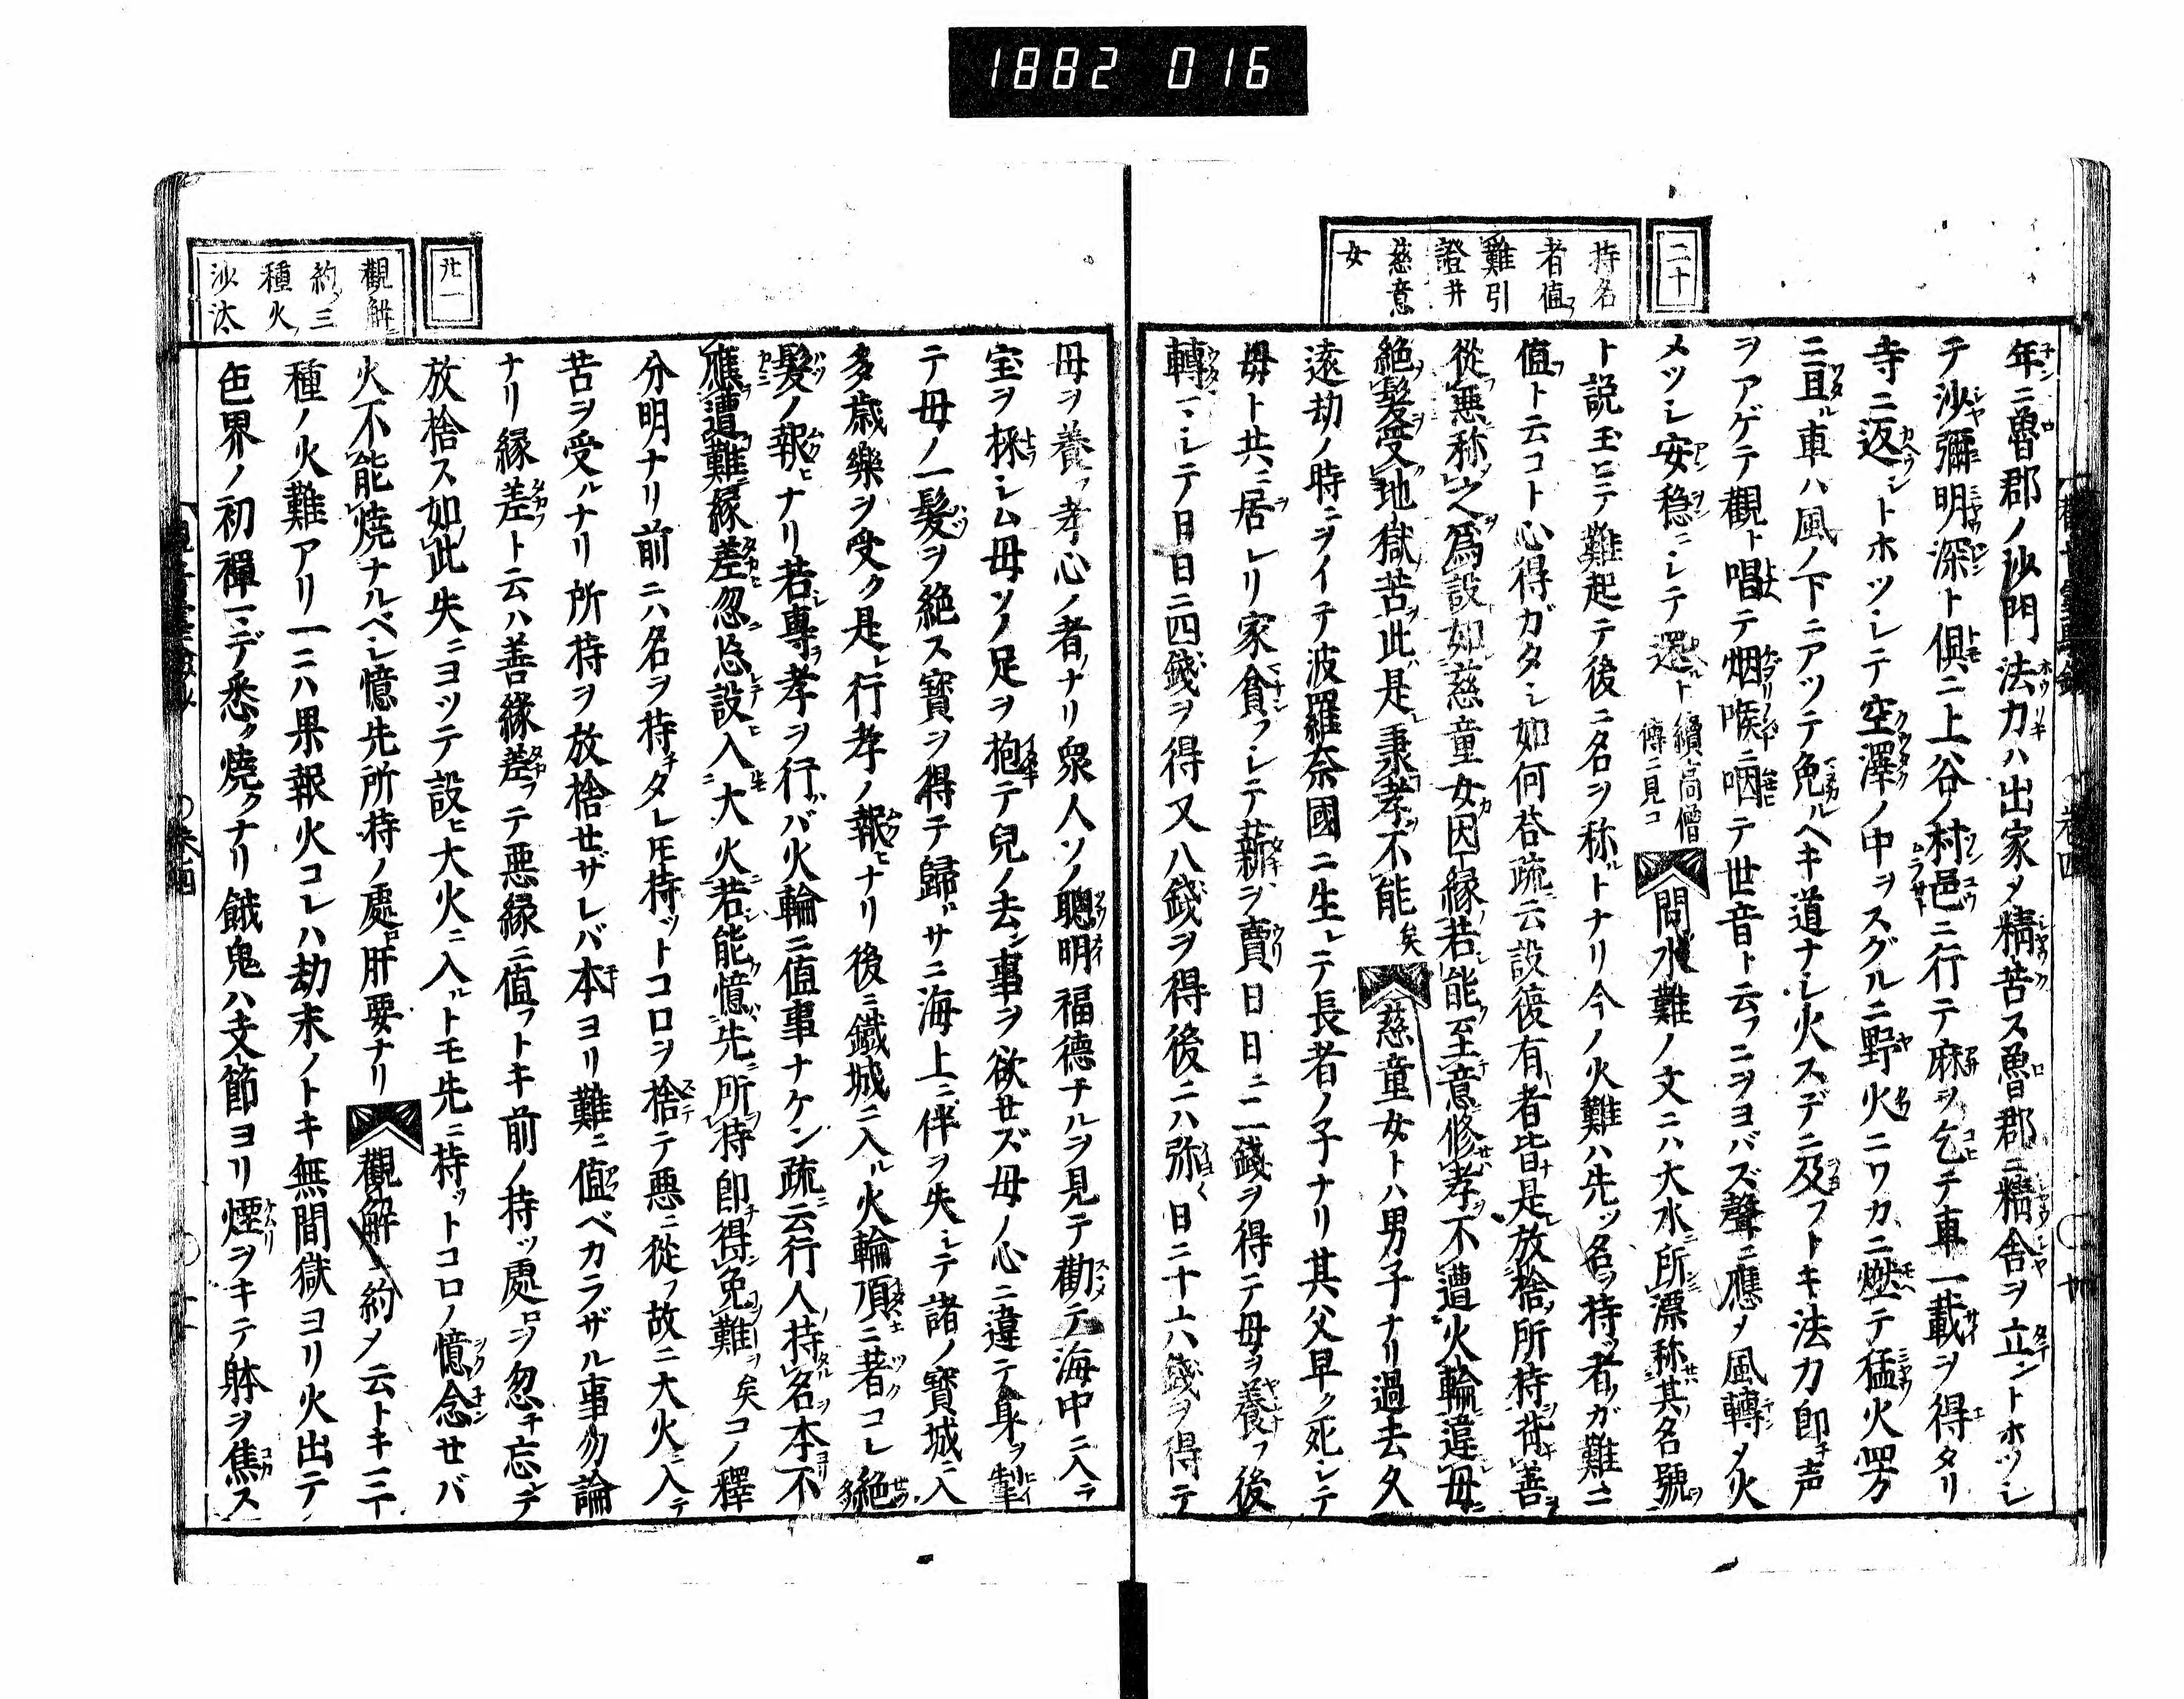 1882 016
二十
持名
者值
難引
證并
慈意
女
年ニ魯郡ノ沙門法力ハ出家メ精苦ス魯郡ニ精舎ヲ立ントホツシ
テ沙彌明深ト倶ニ上谷ノ村邑ニ行テ麻ヲ乞テ車一載ヲ得タリ
寺ニ返シトホツシテ空澤ノ中ヲスグルニ野火ニワカニ燃テ猛火四方
ニ亘ル車ハ風ノ下ニアツテ免ルヘキ道ナシ火スデニ及フトキ法力即チ声
ヲアゲテ觀ト唱テ烟喉ニ咽テ世音ト云フニヲヨバズ聲ニ應メ風轉メ火
メツシ安穏ニシテ還ルト續高僧傳ニ見コ問水難ノ文ニハ大水所漂称其名號
ト説玉ヒテ難起テ後ニ名ヲ称ルトナリ今ノ火難ハ先ツ名ヲ持ツ者ガ難ニ
値フト云コト心得ガタシ如何答疏ニ云設復有者皆是放捨所持背善
從惡称之爲設如慈童女因縁若能至意修孝不遭火輪違母
絶髮受地獄苦此是秉孝不能矣慈童女トハ男子ナリ過去久
遠劫ノ時ニヲイテ波羅奈國ニ生レテ長者ノ子ナリ其父早ク死シテ
母ト共ニ居レリ家貧フシテ薪ヲ賣日日ニ二錢ヲ得テ母ヲ養フ後
轉ニシテ日日ニ四錢ヲ得又八錢ヲ得後ニハ弥〱日ニ十六錢ヲ得テ
廿一
觀解
約三
種火
沙汰
母ヲ養フ孝心ノ者ナリ衆人ソノ聰明福德ナルヲ見テ勸テ海中ニ入ラ
宝ヲ採シム母ソノ足ヲ抱テ兒ノ去ン事ヲ欲セズ母ノ心ニ違テ身ヲ掣
テ母ノ一髮ヲ絶ス寳ヲ得テ歸サニ海上ニ伴ヲ失シテ諸ノ寳城ニ入
多歳樂ヲ受ク是レ行孝ノ報ヒナリ後ニ鐵城ニ入ル火輪頂ニ著コレ絶
髮ノ報ヒナリ若專ヲ孝ヲ行バ火輪ニ値事ナケン疏ニ云行人持名本不
應遭難縁差忽忘設入大火若能憶先所持即得免難矣コノ釋
分明ナリ前ニハ名ヲ持チタレ𪜈持ツトコロヲ捨テ悪ニ從フ故ニ大火ニ入テ
苦ヲ受ルナリ所持ヲ放捨せザレバ本ヨリ難ニ値ベカラザル事勿論
ナリ縁差ト云ハ善縁差フテ悪縁ニ値フトキ前ノ持ツ處ロヲ忽チ忘シテ
放捨ス如此失ニヨツテ設ヒ大火ニ入ルトモ先ニ持ツトコロノ憶念せバ
火不能焼ナルベシ憶先所持ノ處ロ肝要ナリ觀解ニ約メ云トキ三
種ノ火難アリ一ニハ果報火コレハ劫末ノトキ無間獄ヨリ火出テ
色界ノ初禪マデ悉ク燒クナリ餓鬼ハ支節ヨリ煙ヲキテ躰ヲ焦ス